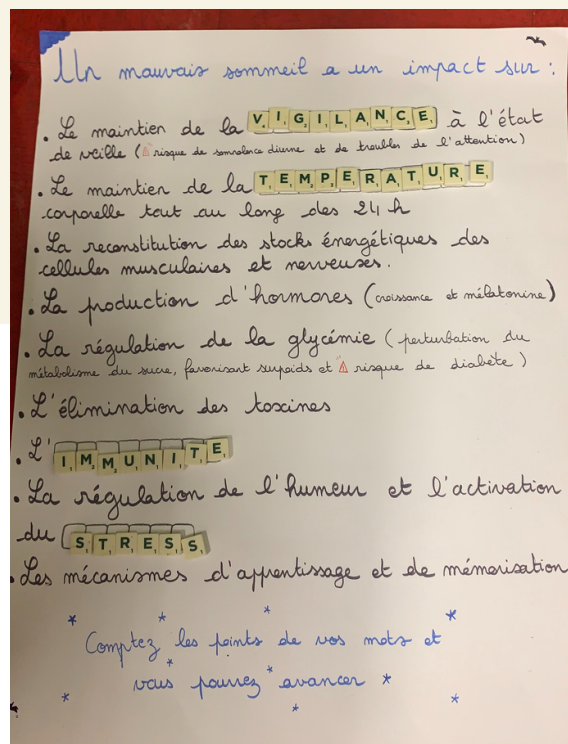 Un mauvais sommeil a un impact sur :
• Le maintien de la VIGILANCE à l'état
de veille (⚠ risque de somnolence diurne et de troubles de l'attention)
• Le maintien de la TEMPERATURE
corporelle tout au long des 24 h
• La reconstitution des stocks énergétiques des
cellules musculaires et nerveuses.
• La production d'hormones (croissance et mélatonine)
• La régulation de la glycémie (perturbation du
métabolisme du sucre, favorisant surpoids et ⚠ risque de diabète)
• L'élimination des toxines
• L'IMMUNITE
• La régulation de l'humeur et l'activation
du STRESS
• Les mécanismes d'apprentissage et de mémorisation
Comptez les points de vos mots et
vous pourrez avancer *